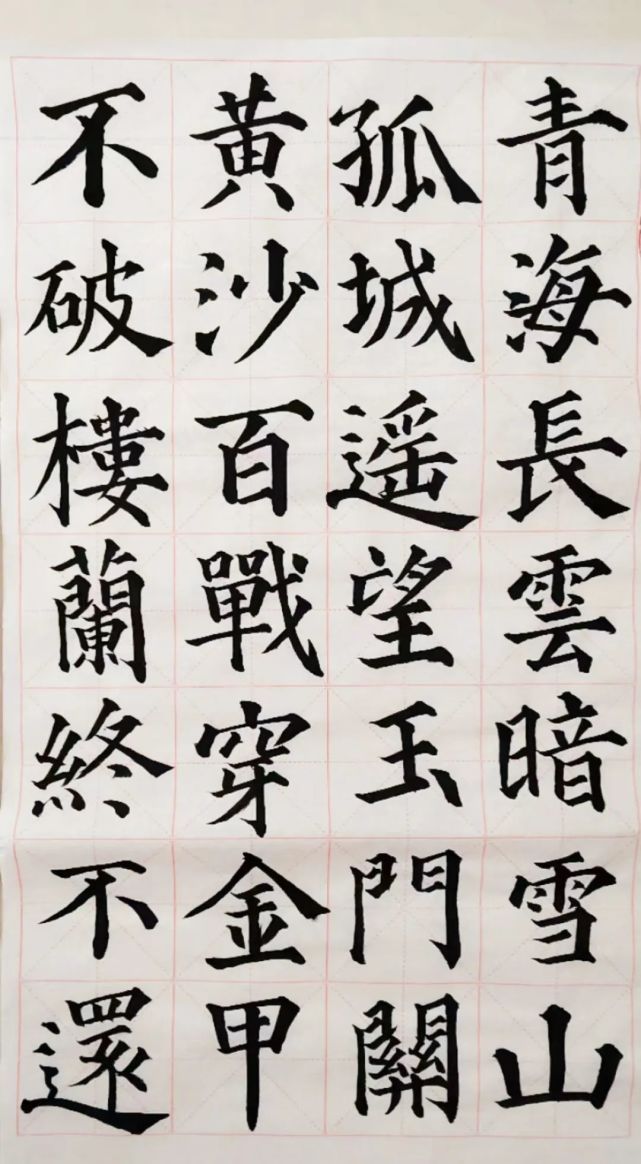 青海長雲暗雪山
孤城遥望玉門關
黄沙百戰穿金甲
不破樓蘭終不還